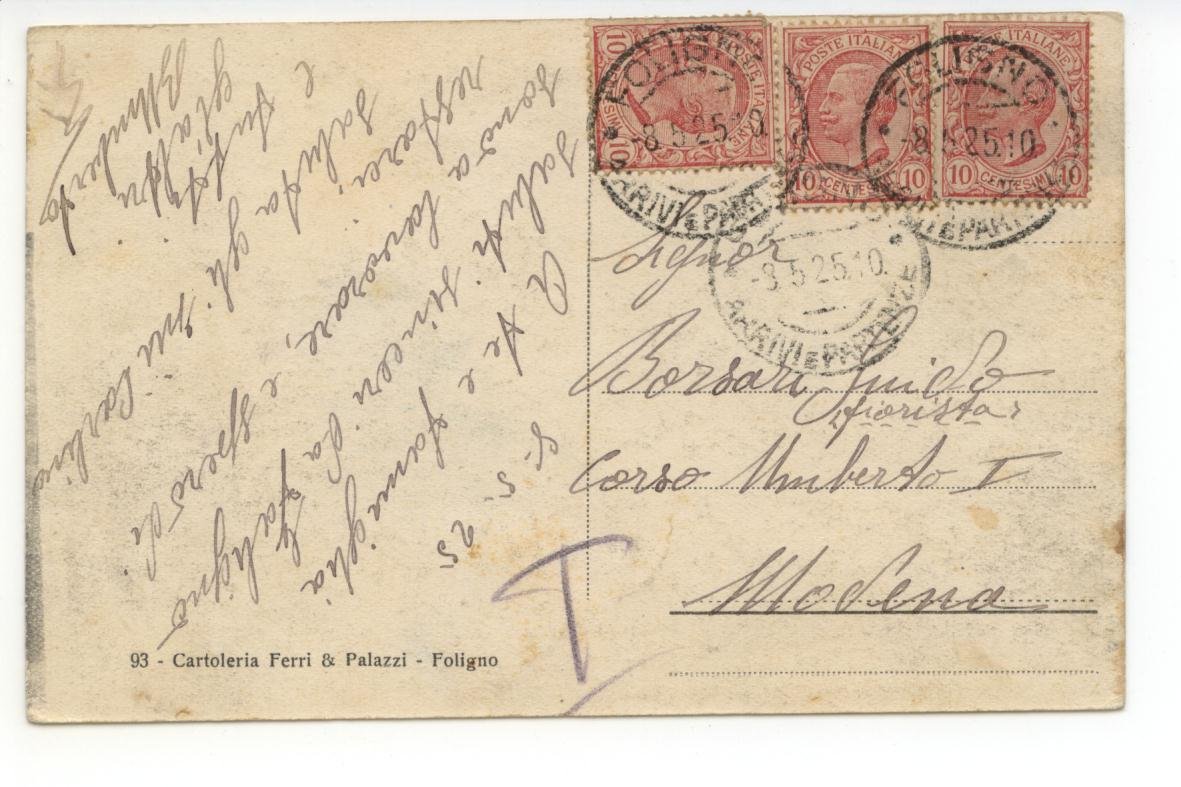 10 POSTE ITALIANE CENTESIMI 10
POSTE ITALIANE
10 CENTESIMI 10
POSTE ITALIANE
10 CENTESIMI 10
FOLIGNO
-8.5.25.10.
ARRIVI E PARTENZE
FOLIGNO
-8.5.25.10.
ARRIVI E PARTENZE
-8.5.25.10.
ARRIVI E PARTENZE
8-5-25
A te e famiglia
saluti sinceri da Foligno
lavorare, e spero di
saluta gli Carlino
e tutti
Umberto
Signor
Borsari Guido
fiorista
Corso Umberto I
Modena
T
93 - Cartoleria Ferri & Palazzi - Foligno